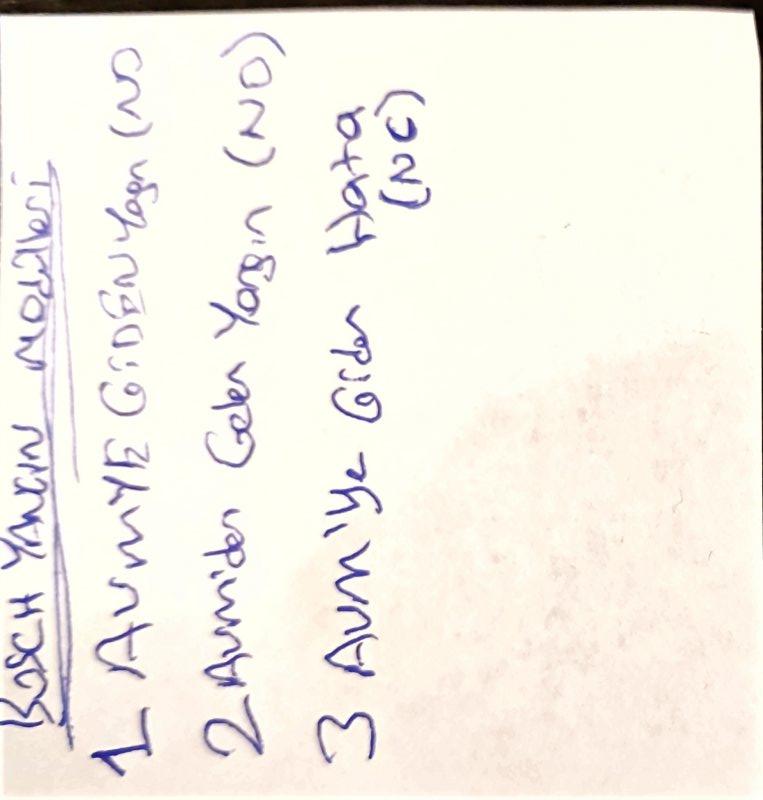 BOSCH YANGIN MODÜLLERİ
1 AVM'YE GİDEN Yangın (NO
2 Avmiden Gelen Yangın (NO)
3 Avm'ye Giden Hata
(NC)